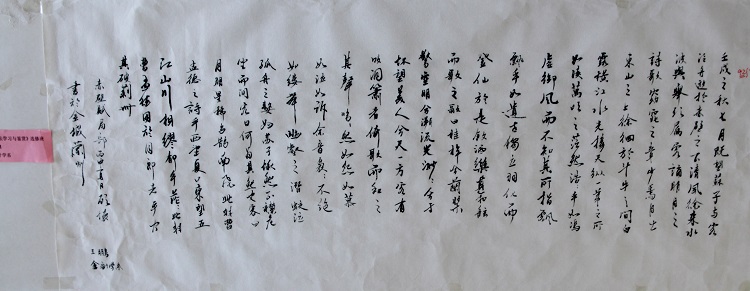 壬戌之秋七月既望蘇子与客
泛舟遊於赤壁之下清風徐来水
波不興舉酒属客誦明月之
詩歌窈窕之章少焉月出
東山之上徘徊於斗牛之間白
露横江水光接天纵一葦之所
如凌萬顷之茫然浩浩乎如馮
虚御風而不知其所止飘
飘乎如遺世獨立羽化而
登仙於是飲酒樂甚扣舷
而歌之歌曰桂棹兮蘭槳
擊空明兮泝流光渺渺兮予
怀望美人兮天一方客有
吹洞簫者倚歌而和之
其聲嗚嗚然如怨如慕
如泣如訴餘音裊裊不绝
如缕舞幽壑之潜蛟泣
孤舟之嫠婦蘇子愀然正襟危
坐而問客曰何為其然也客曰
月明星稀乌鹊南飛此非曹
孟德之詩乎西望夏口東望武
山川相缪郁乎蒼蒼此非
困於周郎者乎方
其破荆州
赤壁赋局部
書於金城蘭州